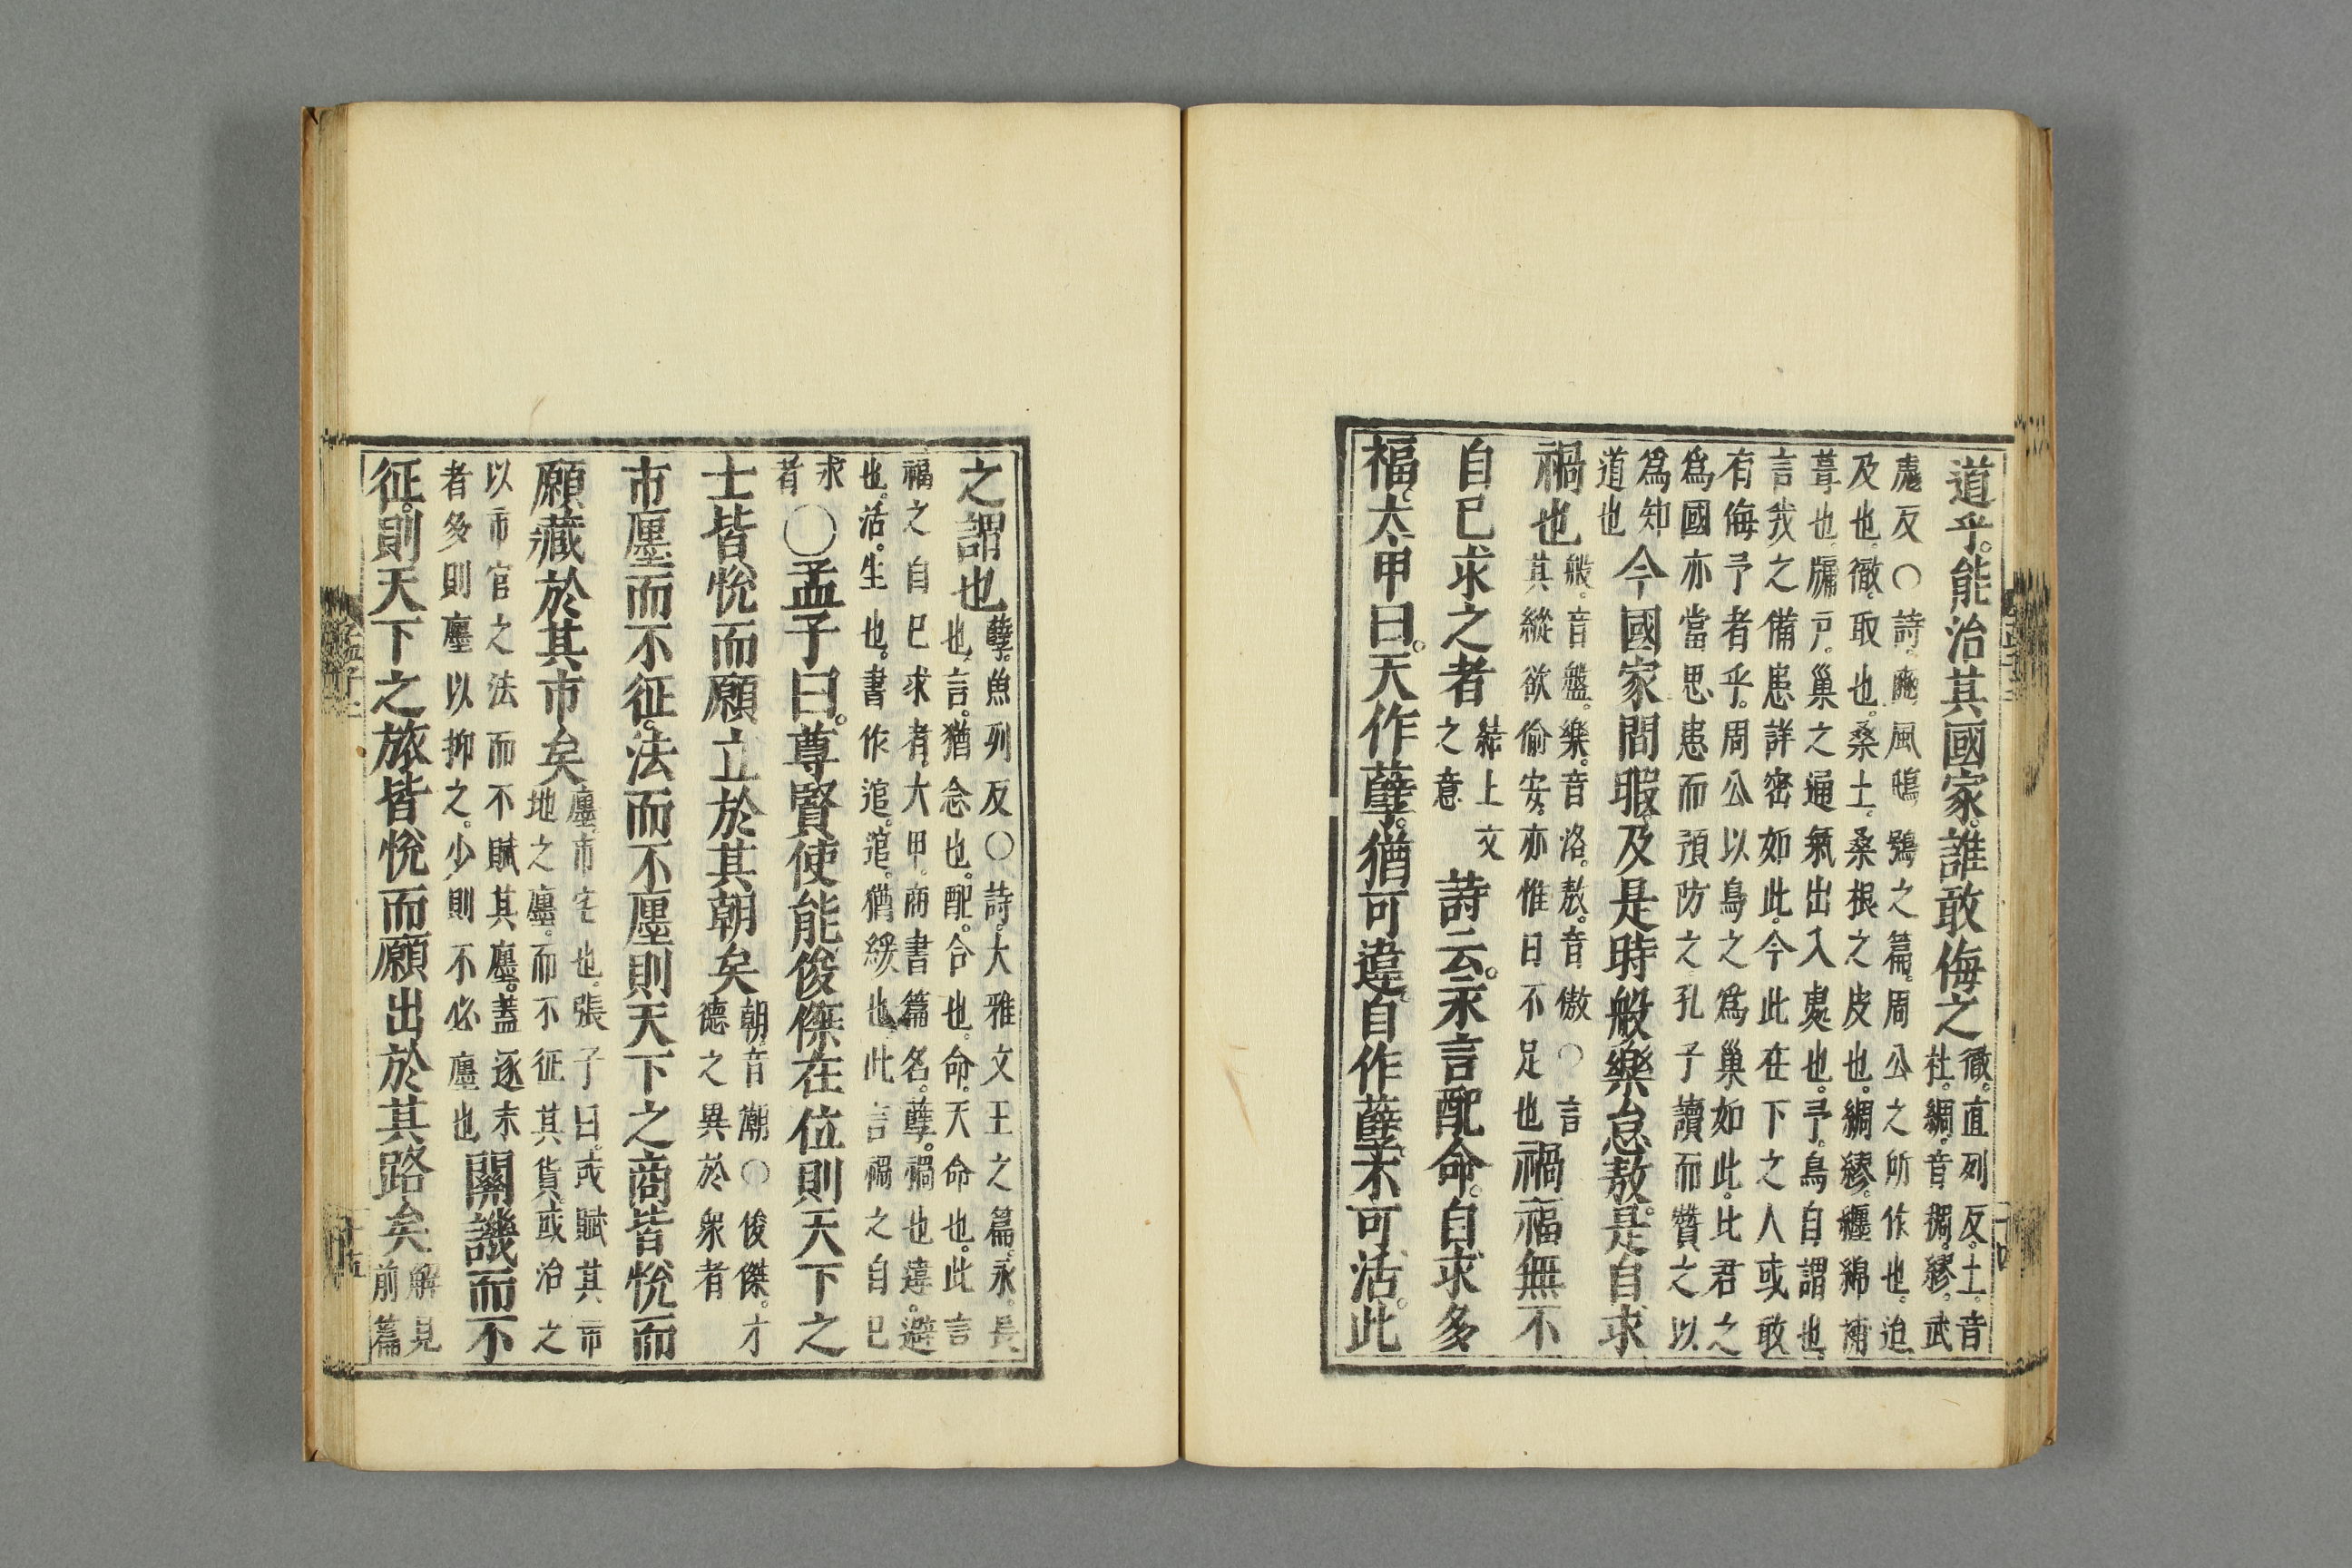 道乎。能治其國家。誰敢侮之徹。直列反。土。音
杜。綢。音稠。繆。武
彪反〇詩。豳風鴟鴞之篇。周公之所作也。迨。
及也。徹。取也。桑土。桑根之皮也。綢繆。纏綿補
葺也。牖戶。巢之通氣出入處也。予。鳥自謂也。
言我之備患詳密如此。今此在下之人或敢
有侮予者乎。周公以鳥之爲巢如此。比君之
爲國亦當思患而預防之。孔子讀而贊之以
爲知
道也
今國家閒暇。及是時般樂怠敖。是自求
禍也般。音盤。樂。音洛。敖。音傲〇言
其縱欲偷安。亦惟日不足也
禍福無不
自己求之者結上文
之意
詩云。永言配命。自求多
福。太甲曰。天作孽。猶可違。自作孽。不可活。此
之謂也孽。魚列反〇詩。大雅文王之篇。永。長
也。言。猶念也。配。合也。命。天命也。此言
福之自己求者。大甲。商書篇名。孽。禍也。違。避
也。活。生也。書作逭。逭。猶緩也。此言禍之自己
求
者
〇孟子曰。尊賢使能俊傑在位則天下之
士皆悅而願立於其朝矣朝。音潮〇俊傑。才
德之異於衆者
市廛而不征。法而不廛則天下之商皆悅而
願藏於其市矣廛。市宅也。張子曰。或賦其市
地之廛。而不征其貨。或治之
以市官之法而不賦其廛。蓋逐末
者多則廛以抑之。少則不必廛也
關譏而不
征。則天下之旅皆悅而願出於其路矣解見
前篇
孟子二
十五